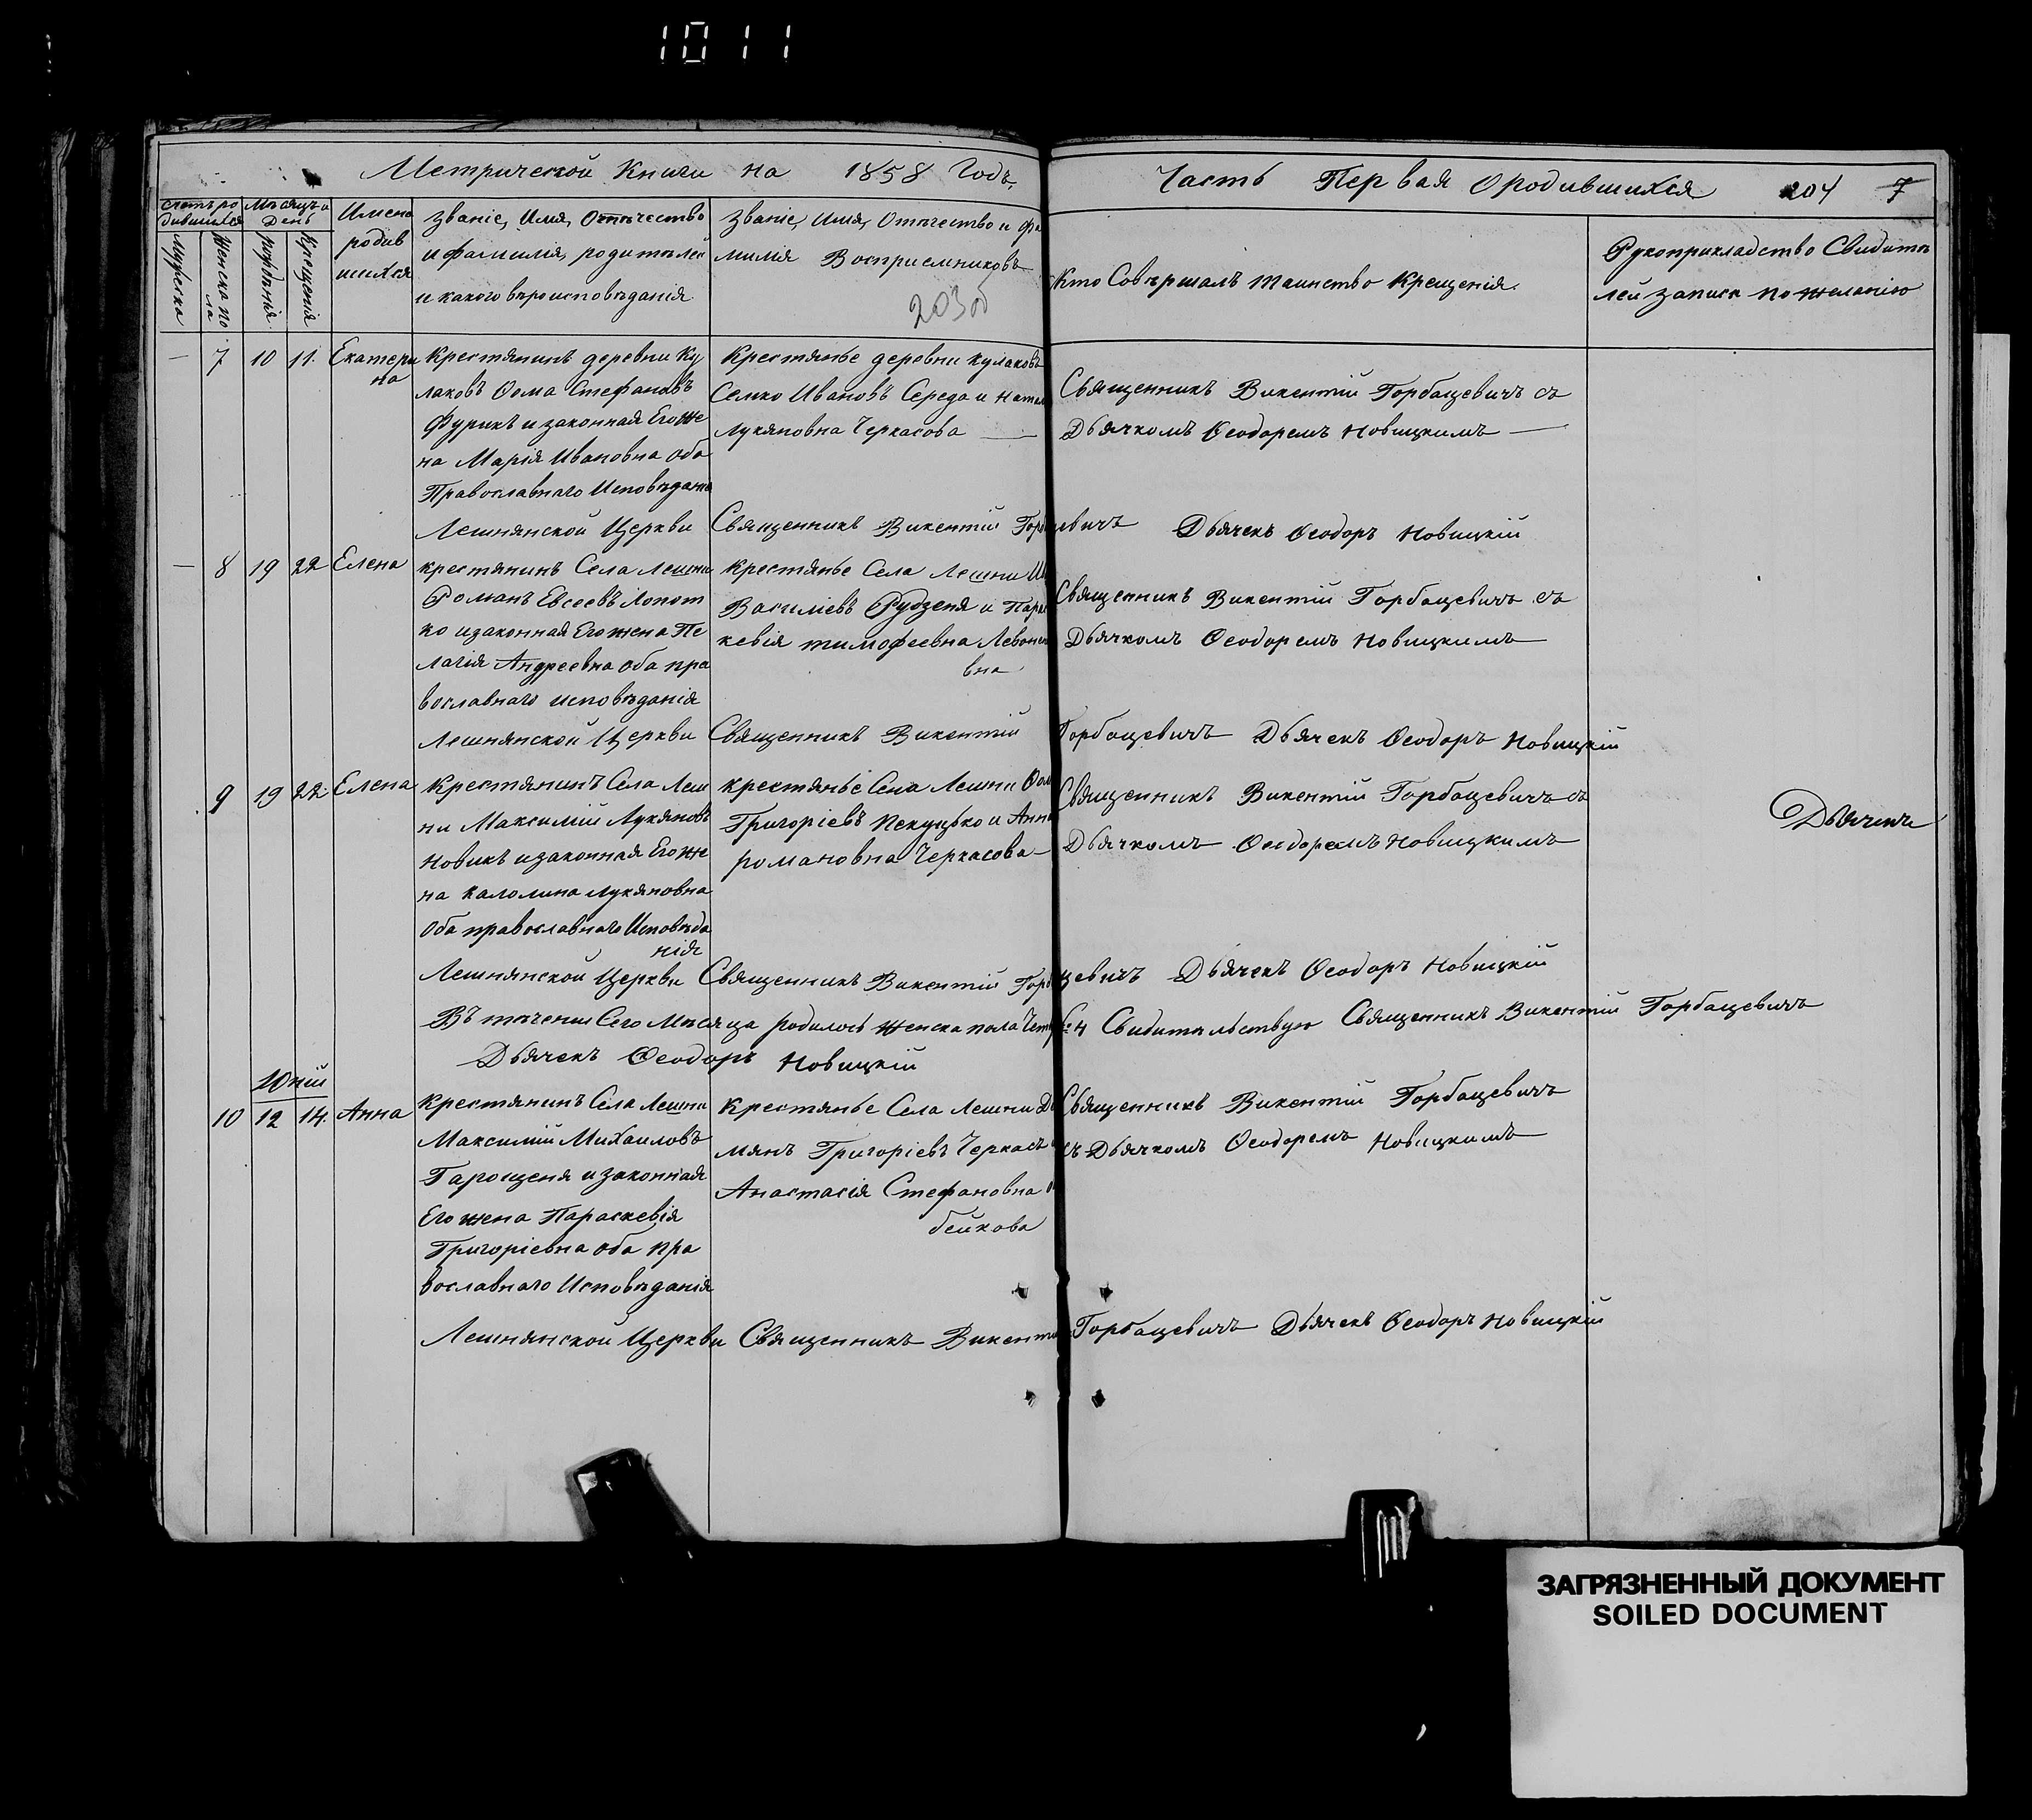 1011
Метрической Книги на 1858 Годъ,
Часть Первая О родившихся 204 7
Счетъ ро
дившихся
Мѣсяцъ и
День
Мужеска
Женска по
ла
рожденія
Крещенія
Имена
родив
шихся
Званіе, Имя, Отечество
и фамилія, родителей
и какого вѣроисповѣданія
Званіе, Имя, Отечество и фа
милія Восприемниковъ
203об
Кто Совершалъ таинство Крещенія.
Рукоприкладство Свидѣте
лей записи по желанію
— 7 10 11. Екатери
на
Крестянинъ деревни Ку
лаковъ Ѳома Стефановъ
Фурикъ и законная Его же
на Марія Ивановна оба
Православнаго Исповѣданія
Крестянѣе деревни Кулаковъ
Семко Ивановъ Середа и
Лукяновна Черкасова —
Священникъ Викентій Горбацевичъ съ
Дьячкомъ Ѳеодоремъ Новицкимъ —
Лешнянской Церкви Священникъ Викентій Горбацевичъ Дьячекъ Ѳеодоръ Новицкій
— 8 19 22 Елена
крестянинъ Села Лешни
Романъ Евсеевъ Лопот
ко и законная Его жена Пе
лагія Андреевна оба пра
вославнаго исповѣданія
крестянѣе Села Лешни
Василіевъ Рудзеня и Парас
кевія тимофеевна
вна
Священникъ Викентій Горбацевичъ съ
Дьячкомъ Ѳеодоремъ Новицкимъ
Лешнянской Церкви Священникъ Викентій Горбацевичъ Дьячекъ Ѳеодоръ Новицкій
9 19 22. Елена
Крестянинъ Села Леш
ни Максимій Лукяновъ
Новикъ и законная Его же
на Калолина Лукяновна
оба православнаго Исповѣда
нія
крестянѣе Села Лешни
Григоріевъ Пекуцько и Анна
романовна Черкасова —
Священникъ Викентій Горбацевичъ съ
Дьячкомъ Ѳеодоремъ Новицкимъ
Дьячекъ
Лешнянской Церкви Священникъ Викентій Горбацевичъ Дьячекъ Ѳеодоръ Новицкій
Въ теченіи Сего Мѣсяца родилось женска пола Свидѣтельствую Священникъ Викентій Горбацевичъ
Дьячекъ Ѳеодоръ Новицкій
Юній
10 12 14. Анна
Крестянинъ Села Лешни
Максимій Михаиловъ
Гарощеня и законная
Его жена Параскевія
Григоріевна оба пра
вославнаго Исповѣданія
Крестянѣе Села Лешни
мянъ Григоріевъ Черкасъ
Анастасія Стефановна
бейкова
Священникъ Викентій Горбацевичъ
съ Дьячкомъ Ѳеодоремъ Новицкимъ
Лешнянской Церкви Священникъ Викентій Горбацевичъ Дьячекъ Ѳеодоръ Новицкій
ЗАГРЯЗНЕННЫЙ ДОКУМЕНТ
SOILED DOCUMENT